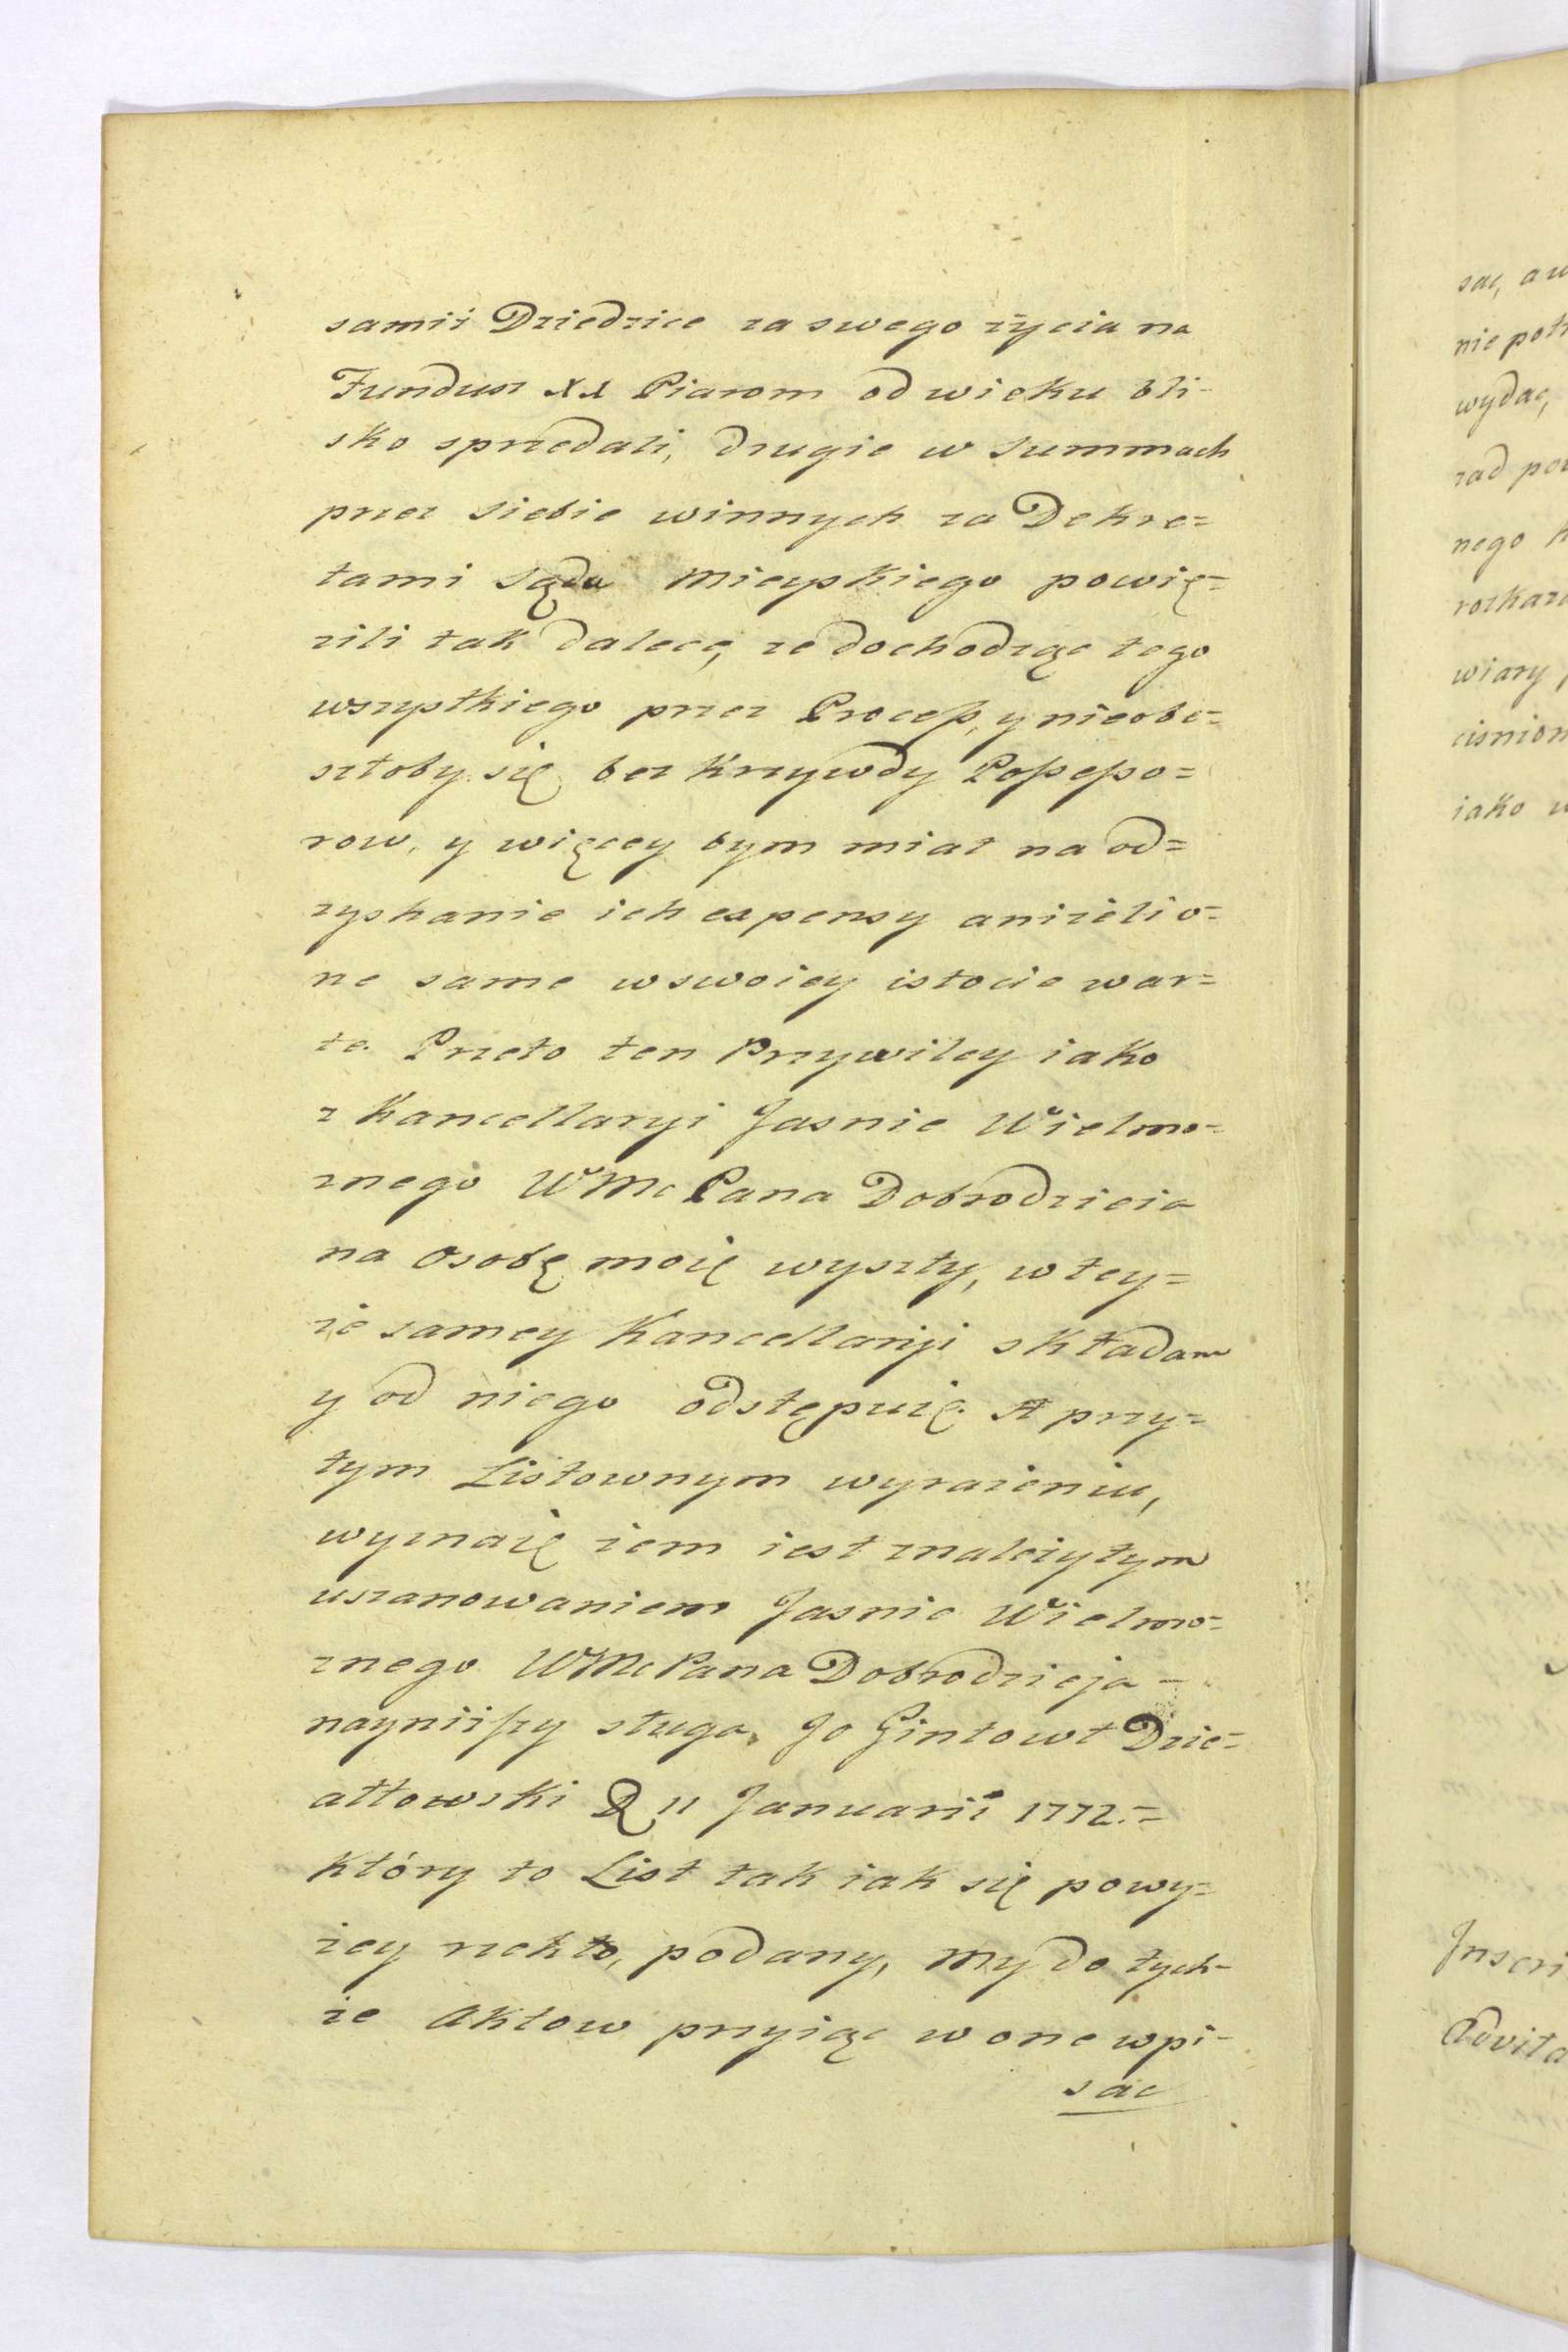 samiż Dziedzice za swego życia na
Fundusz XX Piarom od wieku bli-
sko sprzedali, drugie w Summach
przez siebie winnych za Dekre=
tami Sądu Mieyskiego powię=
zili tak dalece, że dochodząc tego
wszystkiego przez Process, y nieobe=
szłoby się bez Krzywdy Possesso=
row, y więcey bym miał na od=
zyskanie ich expensy aniżeli o=
ne same w swoiey istocie war=
te. Przeto ten Przywiley iako
z Kancellaryi Jasnie Wielmo=
znego WMc Pana Dobrodzieia
na Osobę moię wyszły, w tey=
że samey Kancellaryi składam
y od niego odstępuię. A przy=
tym Listownym wyrażeniu,
wyznaię żem iest z należytym
uszanowaniem Jasnie Wielmo=
znego WMc Pana Dobrodzieja –
nayniższy sługa. Jo Gintowt Dzie=
ałtowski D 11 Januarii 1772.=
który to List tak iak się powy=
żey rzekło, podany, My do tych=
że Aktow przyiąc w one wpi-
sac
sac,
nie
wydac,
nego
wiary
iako